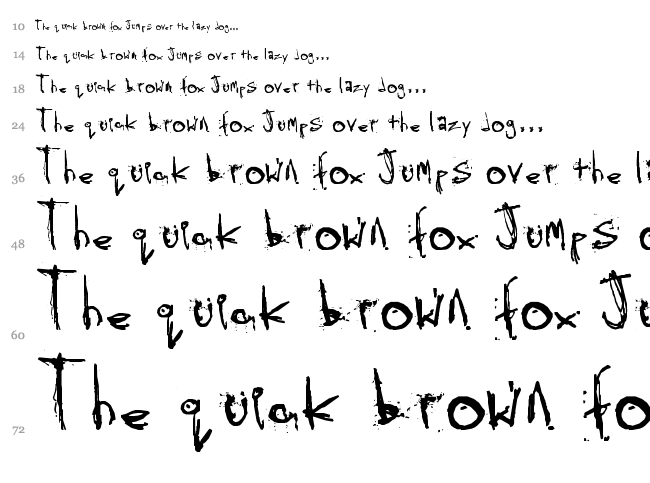 10 The quiak brown fox Jumps over the lazy dog...
14 The quiak brown fox Jumps over the lazy dog...
18 The quiak brown fox Jumps over the lazy dog...
24 The quiak brown fox Jumps over the lazy dog...
36 The quiak brown fox Jumps over the l
48 The quiak brown fox Jumps
60 The quiak brown fox Ju
72 The quiak brown fo